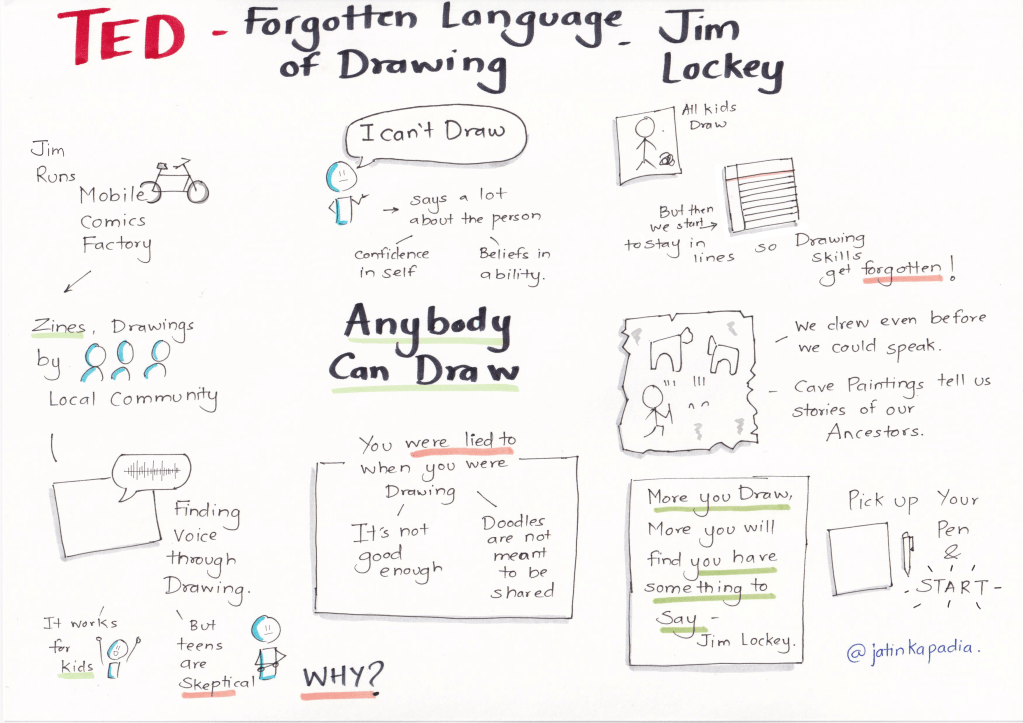 TED - Forgotten Language - Jim
of Drawing Lockey
Jim
Runs
Mobile
Comics
Factory
Zines, Drawings
by
Local Community
Finding
Voice
through
Drawing.
It works
for
kids
But
teens
are
Skeptical
WHY?
I can't Draw
says a lot
about the person
confidence
in self
Beliefs in
ability.
Anybody
Can Draw
You were lied to
when you were
Drawing
It's not
good
enough
Doodles
are not
meant
to be
shared
All kids
Draw
But then
we start
to stay in
lines
so Drawing
skills
get forgotten!
We drew even before
we could speak.
- Cave Paintings tell us
stories of our
Ancestors.
More you Draw,
More you will
find you have
something to
Say -
Jim Lockey.
Pick up Your
Pen
&
START-
@jatinkapadia.